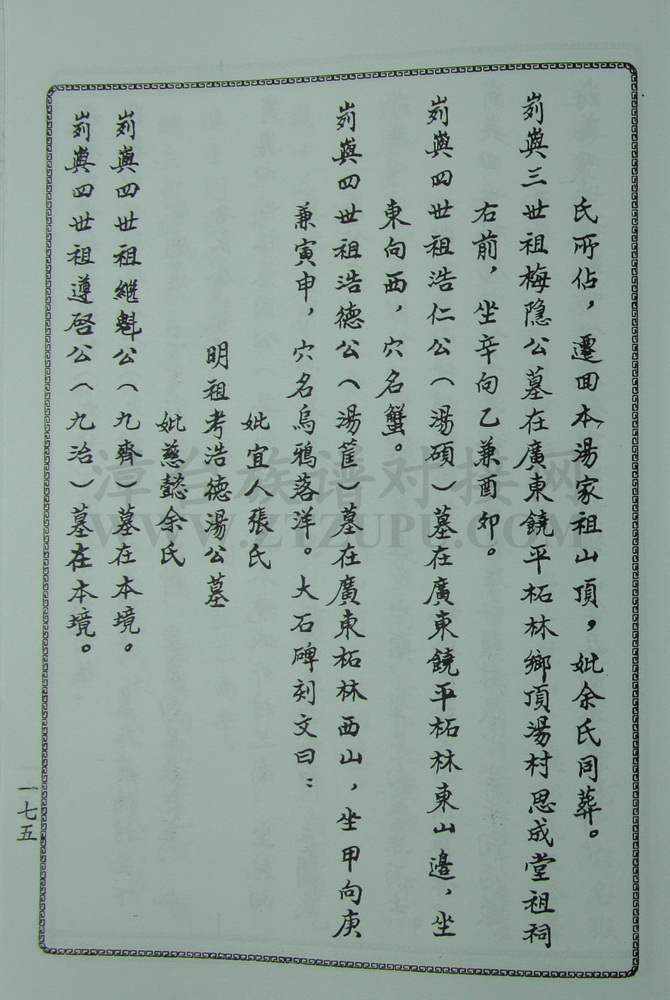 氏所佔，遷回本湯家祖山頂，妣余氏同葬。
峛嶼三世祖梅隐公墓在廣東饒平柘林鄉頂湯村思成堂祖祠
右前，坐辛向乙兼酉卯。
峛嶼四世祖浩仁公（湯碩）墓在廣東饒平柘林東山邊，坐
東向西，穴名蟹。
峛嶼四世祖浩德公（湯篚）墓在廣東柘林西山，坐甲向庚
兼寅申，穴名烏鴉落洋。大石碑刻文曰：
妣宜人張氏
明祖考浩德湯公墓
妣慈懿余氏
峛嶼四世祖繼魁公（九齊）墓在本境。
峛嶼四世祖遵啓公（九治）墓在本境。
一七五
WWW.ZTZUPU.COM